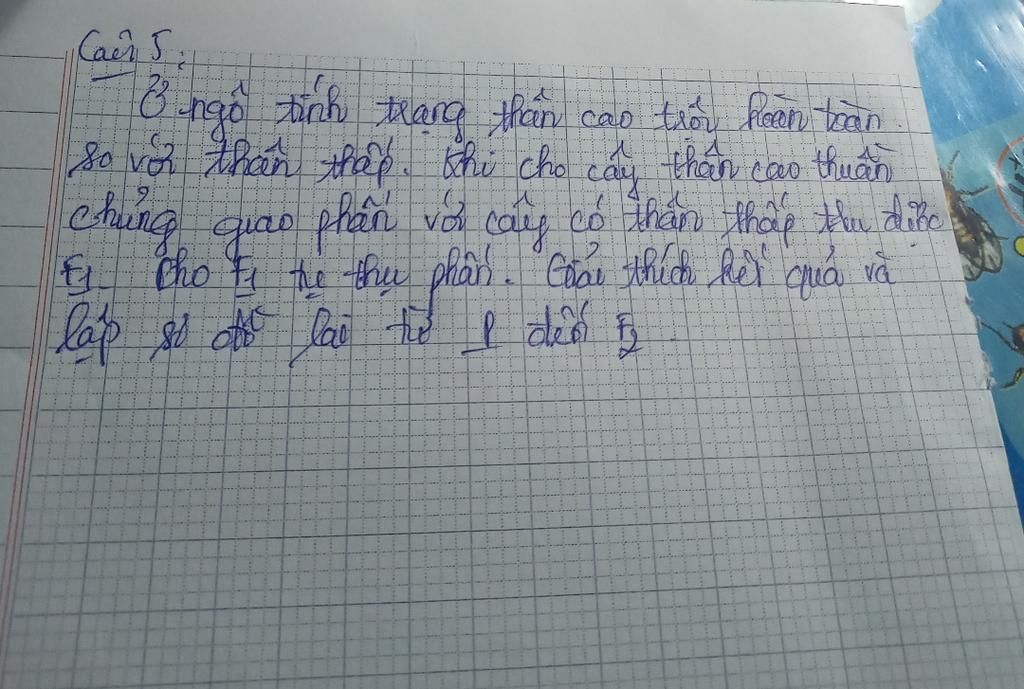 Câu 5:
Ở ngô tính trạng thân cao trội hoàn toàn
so với thân thấp. Khi cho cây thân cao thuần
chủng giao phấn với cây có thân thấp thu được
F1. Cho F1 tự thụ phấn. Giải thích kết quả và
lập sơ đồ lai từ P đến F2.